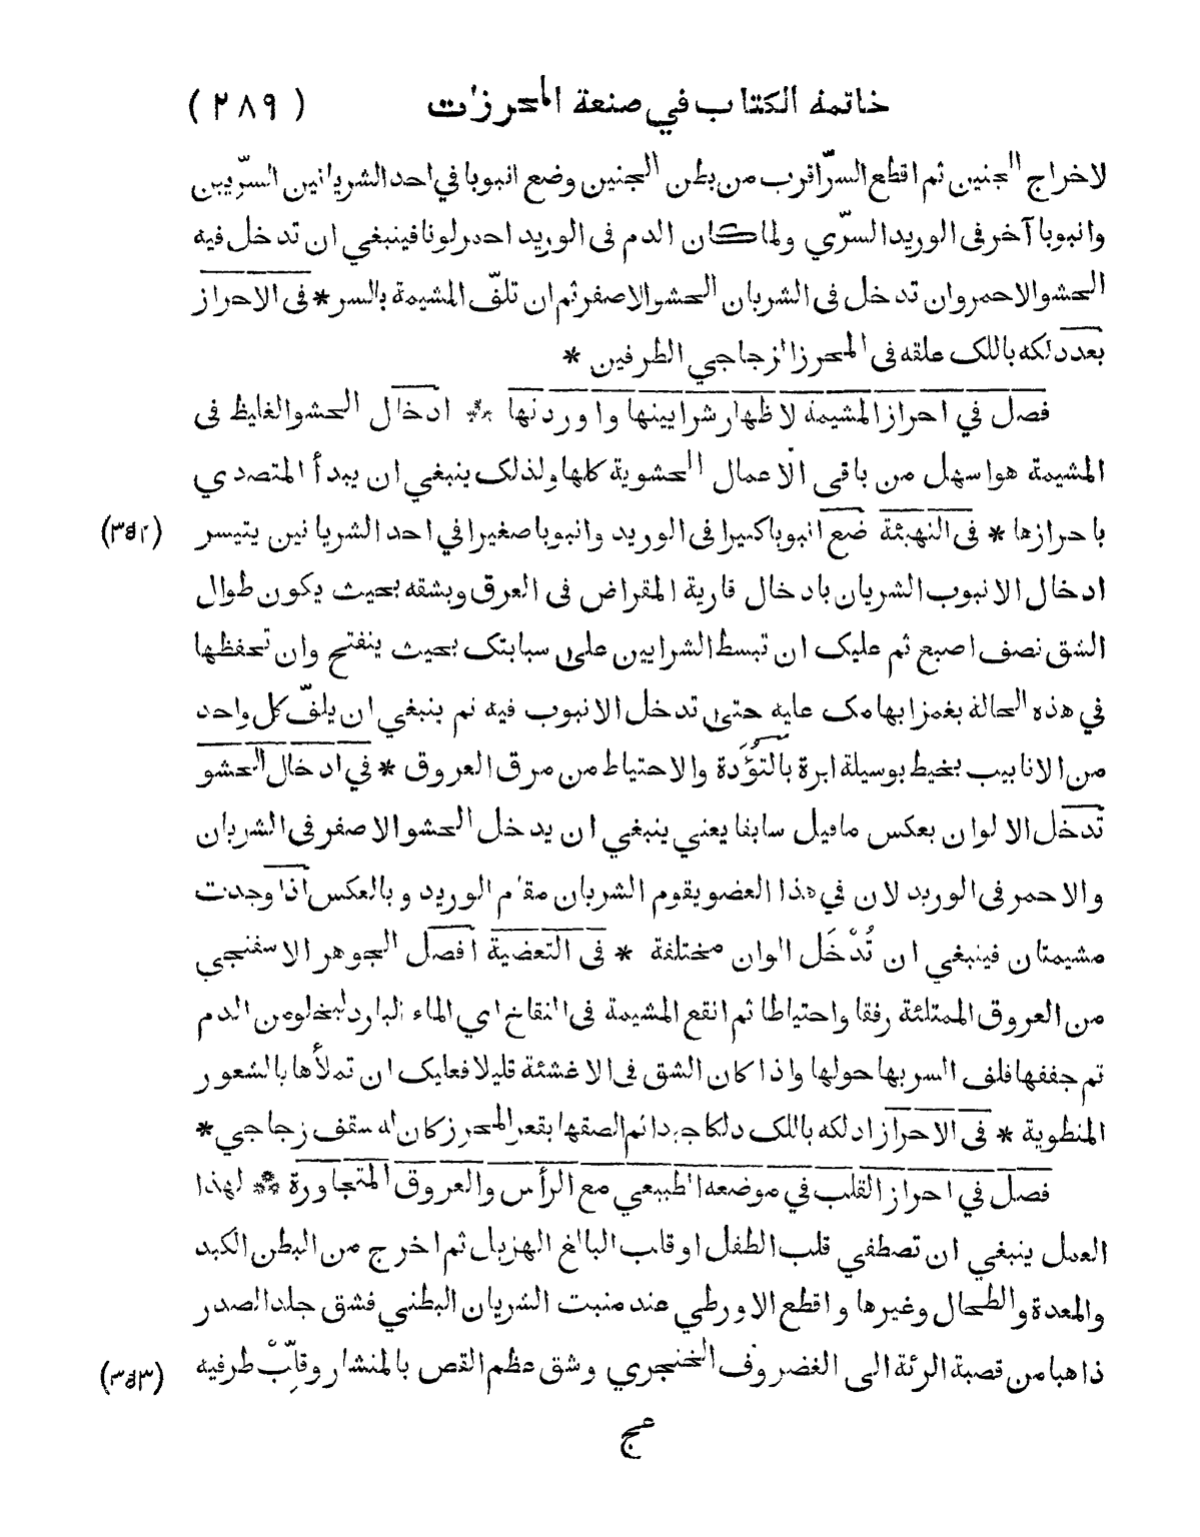 خاتمة الكتاب في صنعة المحرزات (٢٨٩)
لاخراج الجنين ثم اقطع السرّ اقرب من بطن الجنين وضع انبوبا في احد الشريانين السرّيين
وانبوبا آخر في الوريد السرّي ولما كان الدم فى الوريد احمر لونا فينبغي ان تدخل فيه
الحشو الاحمر وان تدخل فى الشريان الحشو الاصفر ثم ان تلفّ المشيمة بالسر * فى الاحراز
بعد دلكه باللک علقه فى المحرز الزجاجي الطرفين *
فصل في احراز المشيمة لاظهار شرايينها واوردتها * ادخال الحشو الغليظ فى
المشيمة هو اسهل من باقى الاعمال الحشوية كلها ولذلک ينبغي ان يبدأ المتصدي
باحرازها * فى التهيئة ضع انبوبا كبيرا فى الوريد وانبوبا صغيرا في احد الشريانين يتيسر (٣٥٢)
ادخال الانبوب الشريان بادخال قارية المقراض فى العرق وبشقه بحيث يكون طوال
الشق نصف اصبع ثم عليک ان تبسط الشرايين على سبابتک بحيث ينفتح وان تحفظها
في هذه الحالة بغمز ابهامک عليه حتى تدخل الانبوب فيه ثم ينبغي ان يلفّ كل واحد
من الانابيب بخيط بوسيلة ابرة بالتُؤَدة والاحتياط من مرق العروق * في ادخال الحشو
تدخل الالوان بعكس ماقيل سابقا يعني ينبغي ان يدخل الحشو الاصفر فى الشريان
والاحمر فى الوريد لان في هذا العضو يقوم الشريان مقام الوريد وبالعكس اذا وجدت
مشيمتان فينبغي ان تُدْخَل الوان مختلفة * فى التعضية افصل الجوهر الاسفنجي
من العروق الممتلئة رفقا واحتياطا ثم انقع المشيمة فى النقاخ اي الماء البارد ليخلو من الدم
ثم جففها فلف السر بها حولها واذا كان الشق فى الاغشئة قليلا فعليک ان تملأها بالشعور
المنطوية * فى الاحراز ادلكه باللک دلكا جيدا ثم الصقها بقعر المحرز كان له سقف زجاجي *
فصل في احراز القلب في موضعه الطبيعي مع الرأس والعروق المتجاورة * لهذا
العمل ينبغي ان تصطفي قلب الطفل او قلب البالغ الهزيل ثم اخرج من البطن الكبد
والمعدة والطحال وغيرها واقطع الاورطي عند منبت الشريان البطني فشق جلد الصدر
ذاهبا من قصبة الرئة الى الغضروف الخنجري وشق عظم القص بالمنشار وقلِّبْ طرفيه (٣٥٣)